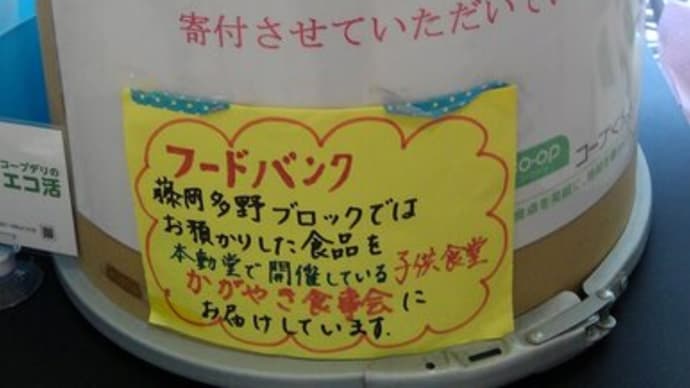 寄付させていただいてい
フードバンク
藤岡多野ブロックでは
お預かりした食品を
本動堂で開催している子供食堂
かがやき食事会に
お届けしています.
コープデリの
エコ活
co-op コープ